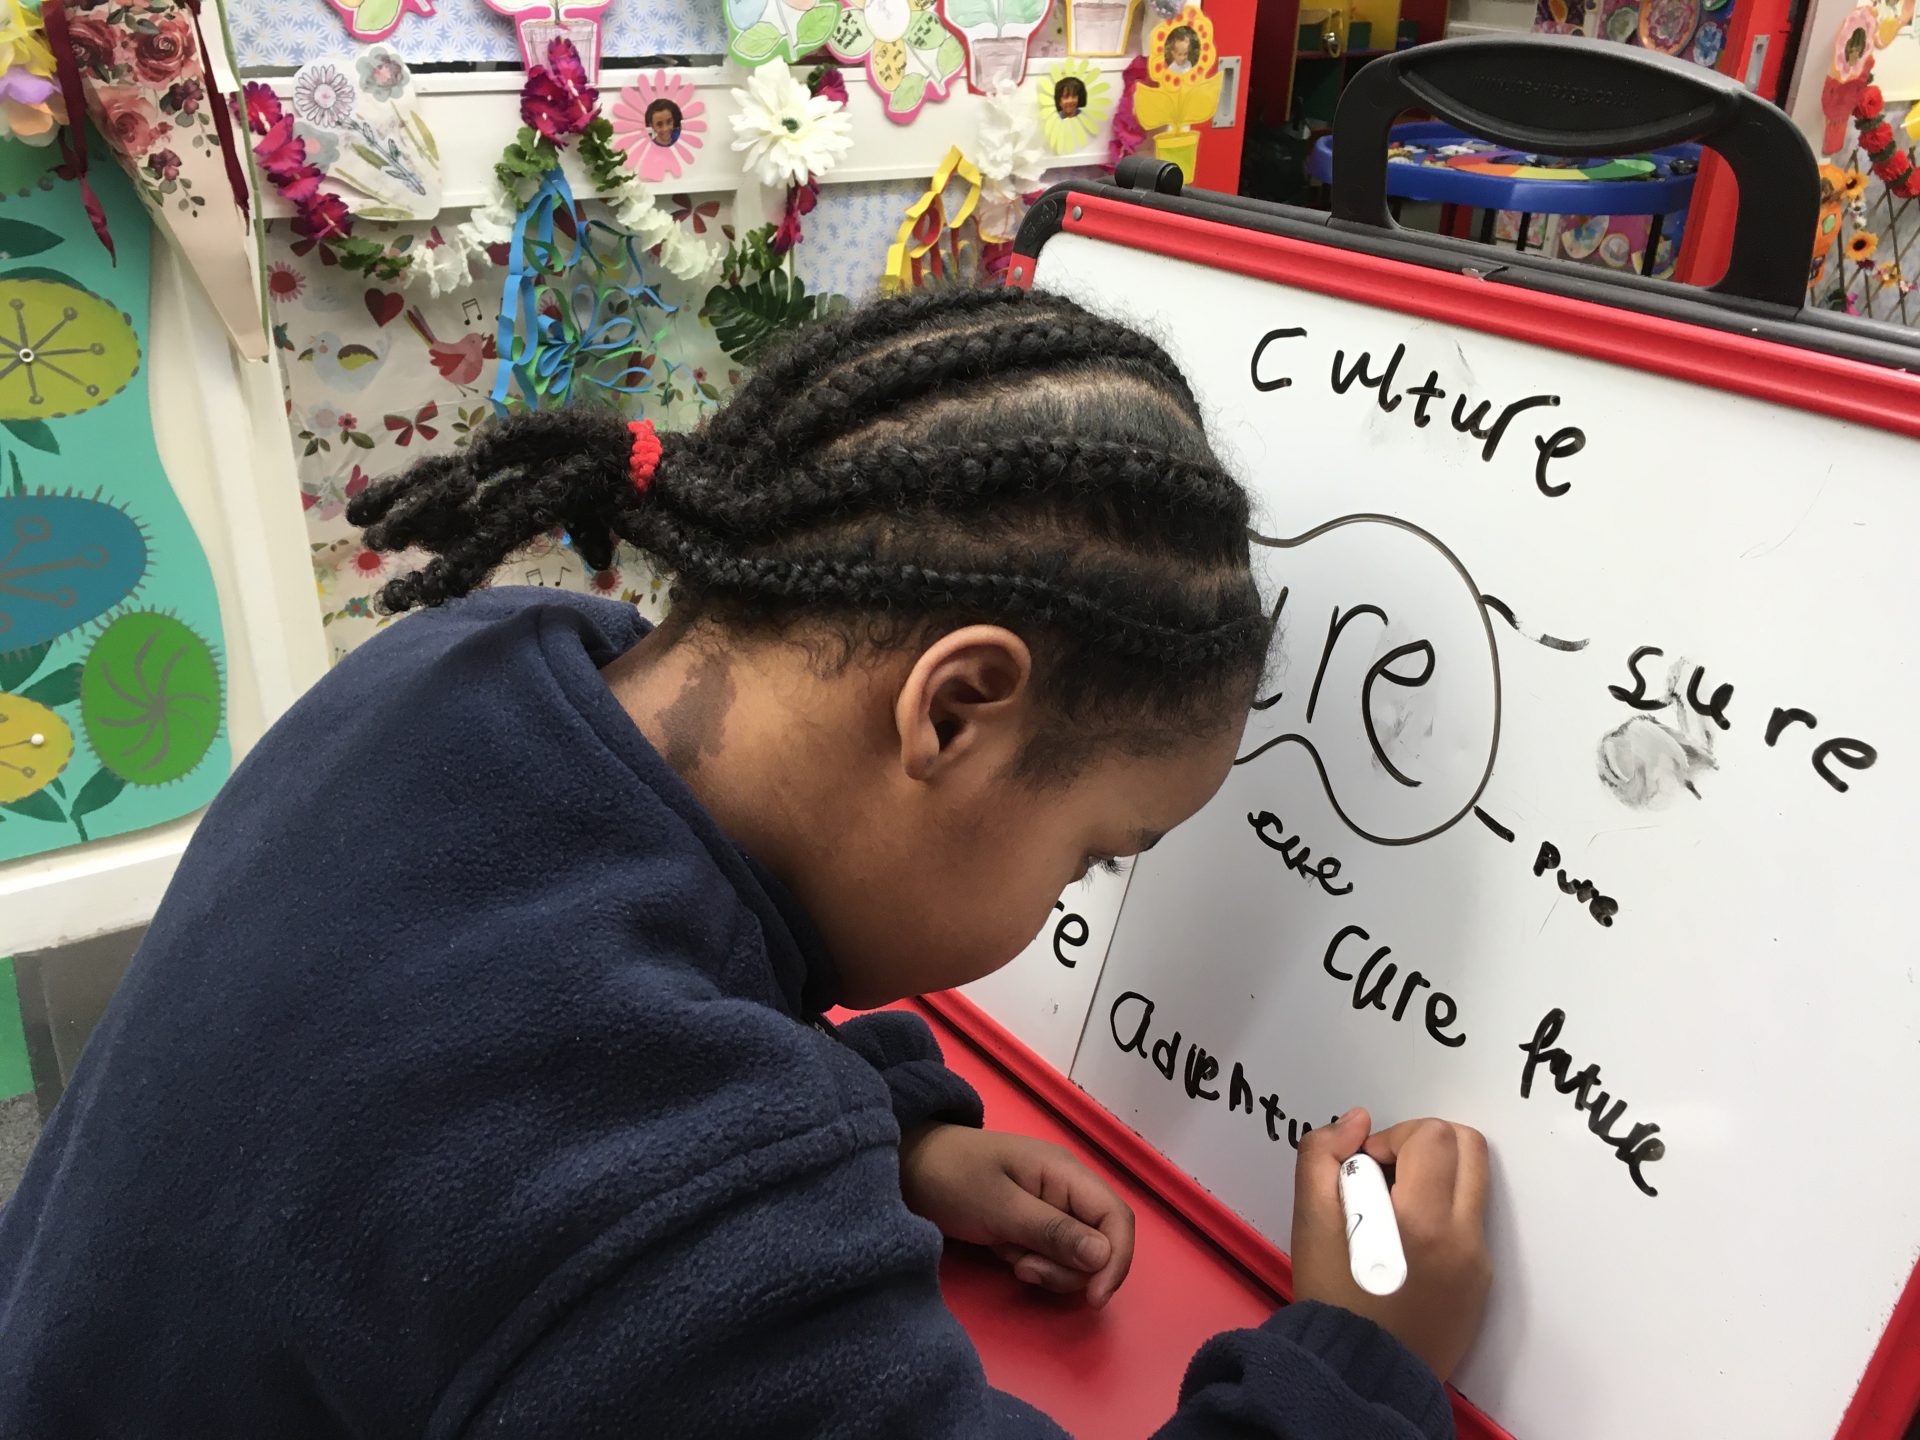 culture
ure
sure
Pure
cure
re
adventu
future